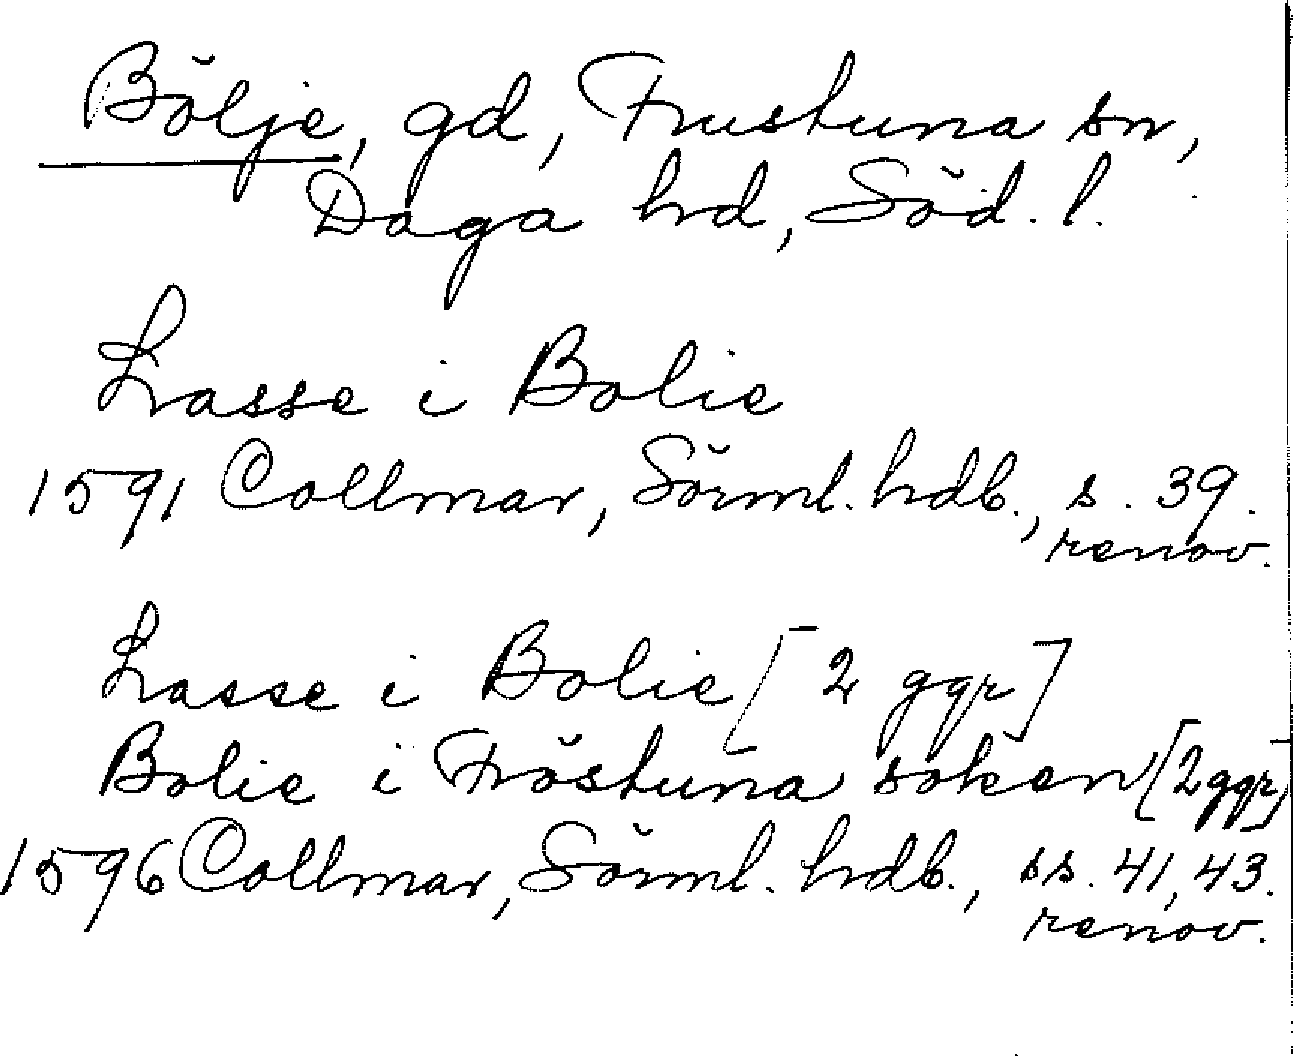 Bölje, gd, Frustuna sn,
Daga hd, Söd. l.
Lasse i Bolie
1591 Collmar, Sörml. hdb., s. 39.
renov.
Lasse i Bolie [2 ggr]
Bolie i Fröstuna soken [2 ggr]
1596 Collmar, Sörml. hdb., ss. 41, 43.
renov.